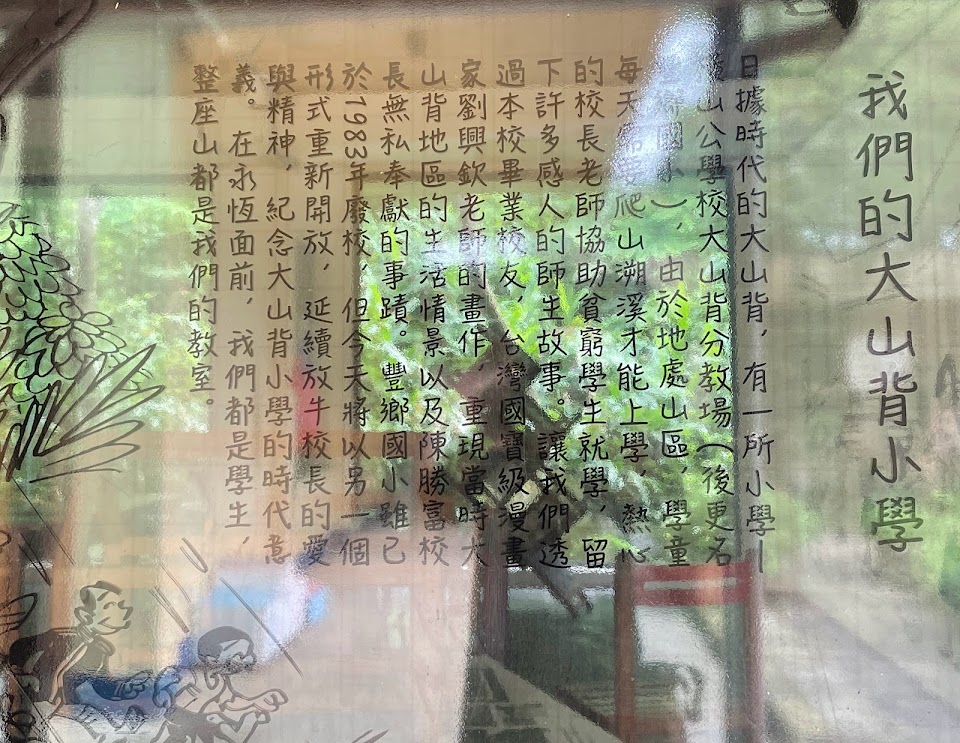 我們的大山背小學
日據時代的大山背,有一所小學—
山公學校大山背分教場(後更名
國小),由於地處山區,學童
每天需要爬山溯溪才能上學,熱心
的校長老師協助貧窮學生就學,留
下許多感人的師生故事。讓我們透
過本校畢業校友,台灣國寶級漫畫
家劉興欽老師的畫作,重現當時大
山背地區的生活情景以及陳勝富校
長無私奉獻的事蹟。豐鄉國小雖已
於1983年廢校,但今天將以另一個
形式重新開放,延續放牛校長的愛
與精神,紀念大山背小學的時代意
義。在永恆面前,我們都是學生,
整座山都是我們的教室。